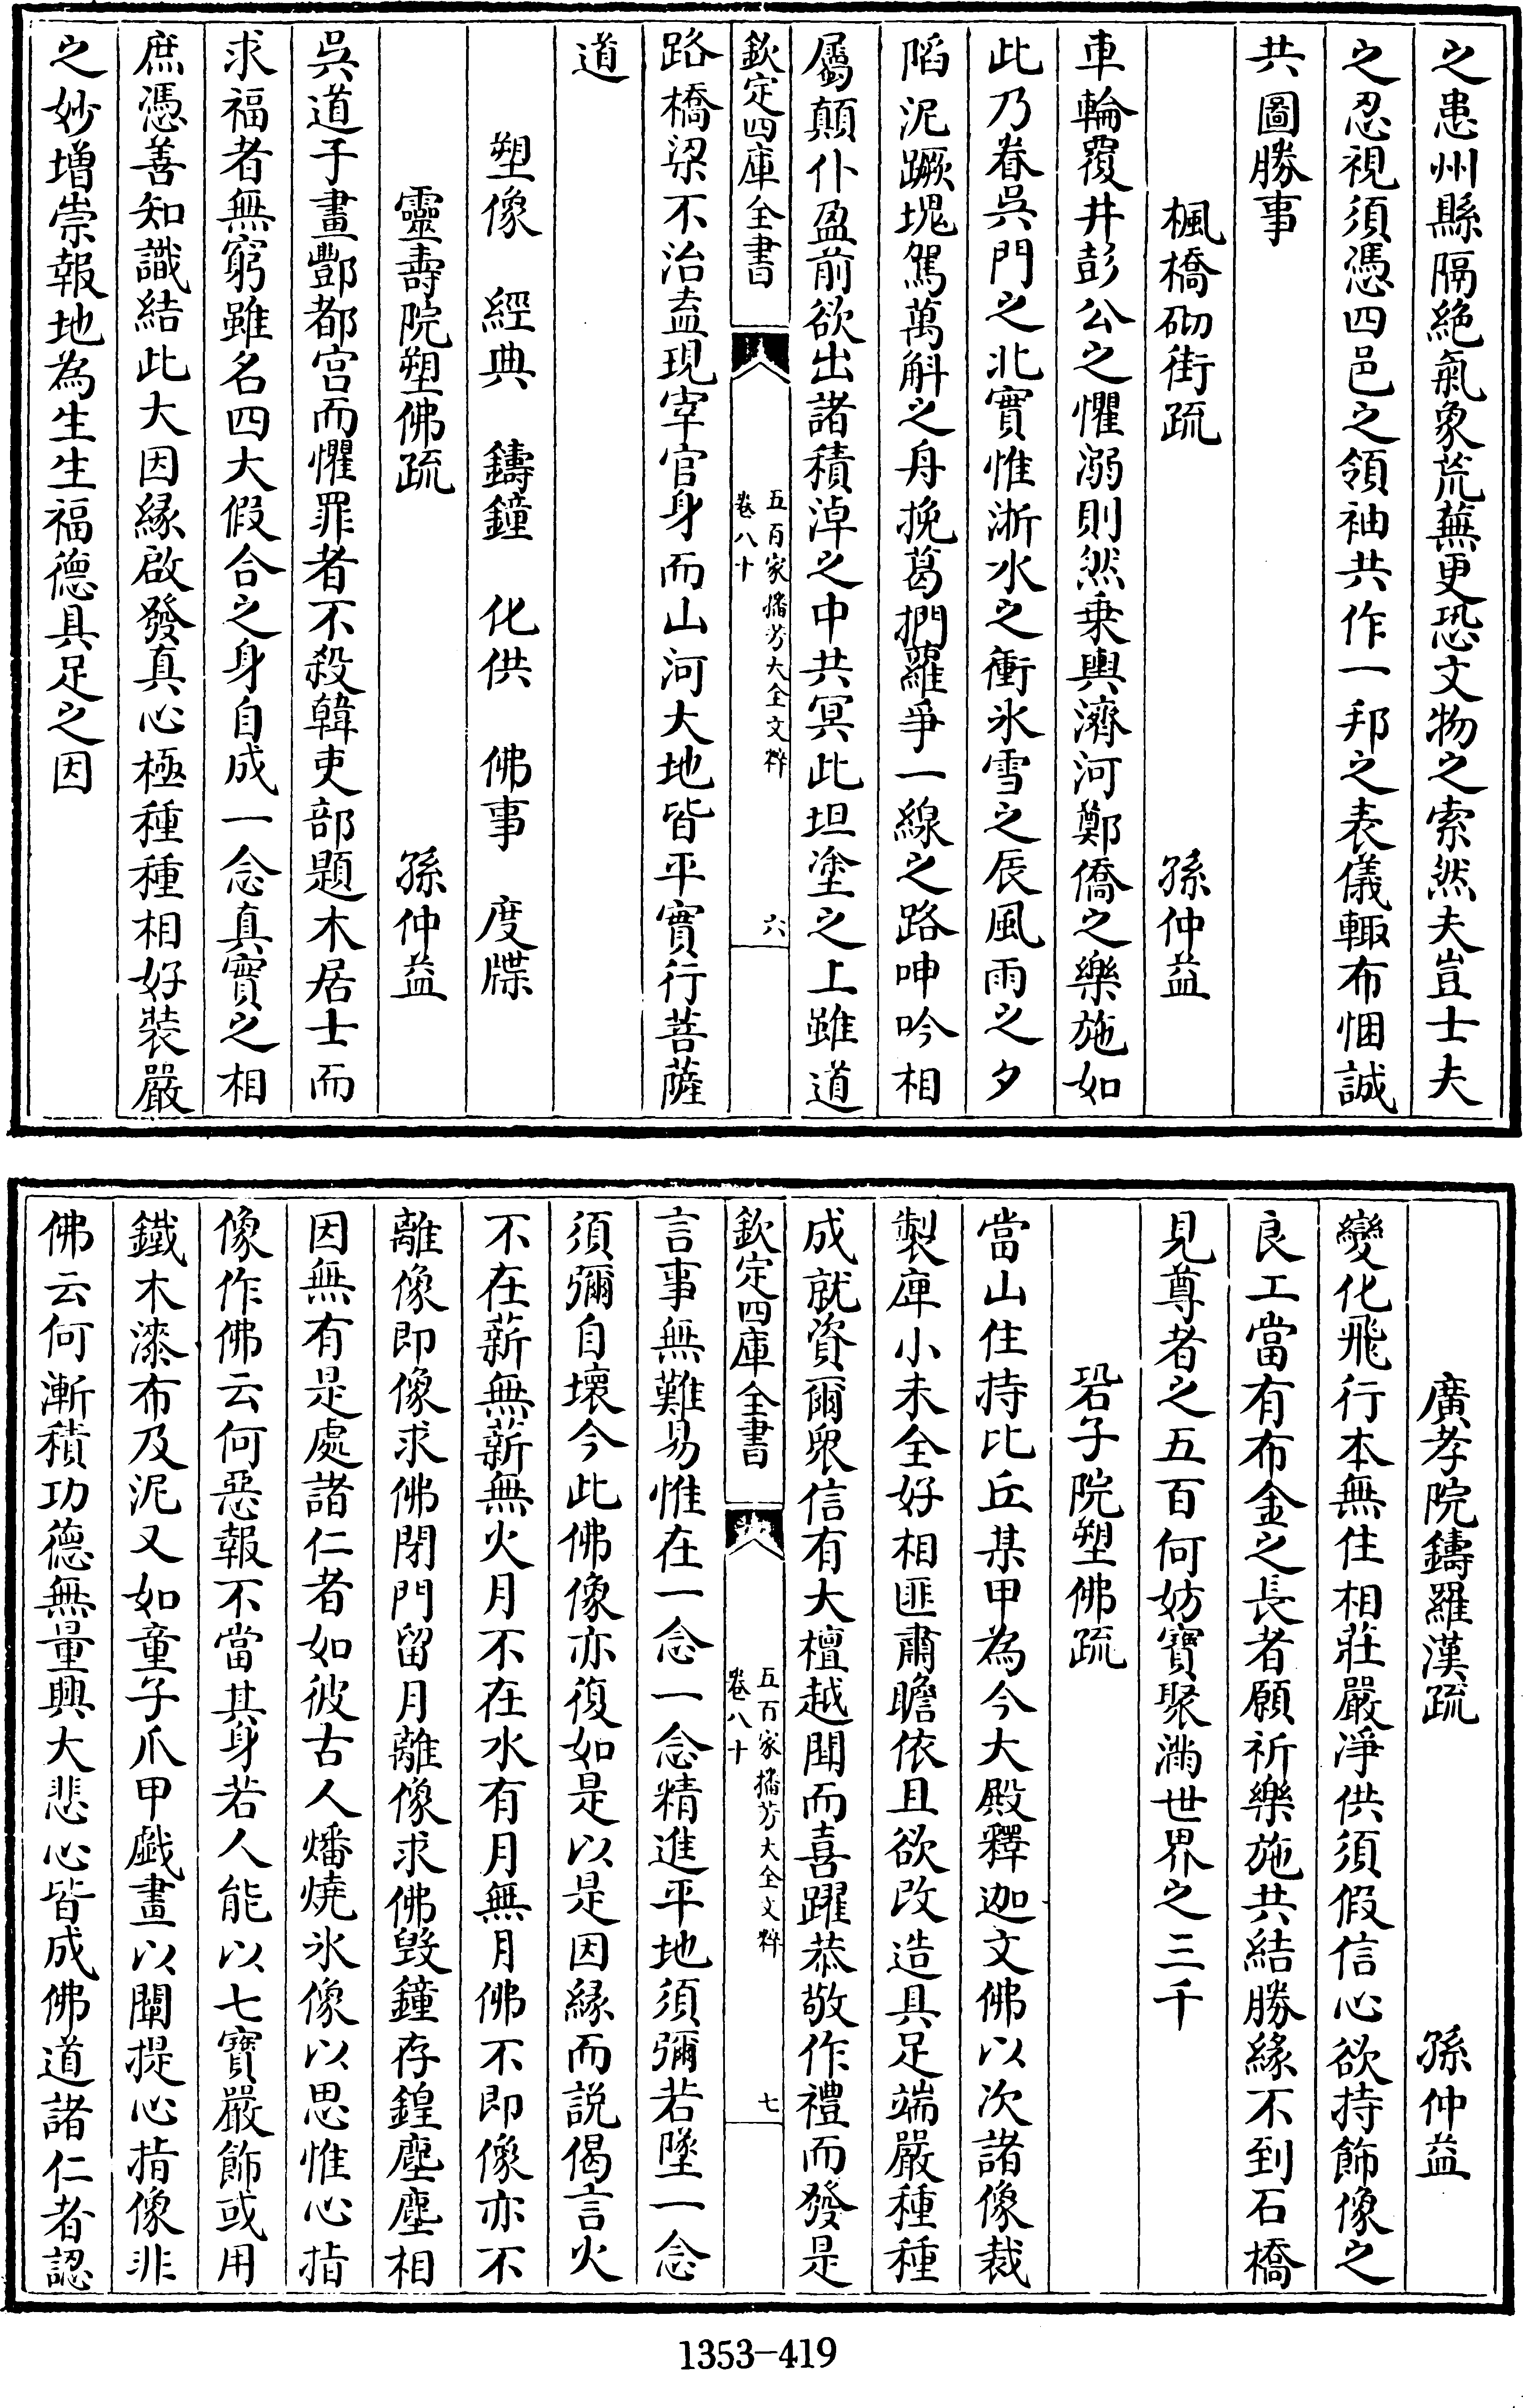 之患州縣隔絶氣象荒蕪更恐文物之索然夫豈士夫
之忍視須憑四邑之領袖共作一邦之表儀輙布悃誠
共圖勝事
楓橋砌街疏　孫仲益
車輪覆井彭公之懼溺則然乗輿濟河鄭僑之樂施如
此乃眷吳門之北實惟浙水之衝氷雪之辰風雨之夕
陷泥蹶塊駕萬斛之舟挽葛捫蘿爭一線之路呻吟相
屬顛仆盈前欲出諸積淖之中共冥此坦塗之上雖道
欽定四庫全書　五百家播芳大全文粹　卷八十　六
路橋梁不治盍現宰官身而山河大地皆平實行菩薩
道
塑像　經典　鑄鐘　化供　佛事　度牒
靈壽院塑佛疏　孫仲益
吳道子畫酆都宫而懼罪者不殺韓吏部題木居士而
求福者無窮雖名四大假合之身自成一念真實之相
庶憑善知識結此大因緣啟發真心極種種相好裝嚴
之妙增崇報地為生生福德具足之因
廣孝院鑄羅漢疏　孫仲益
變化飛行本無住相莊嚴凈供須假信心欲持飾像之
良工當有布金之長者願祈樂施共結勝緣不到石橋
見尊者之五百何妨寶聚滿世界之三千
硲子院塑佛疏
當山住持比丘某甲為今大殿釋迦文佛以次諸像裁
製庳小未全好相匪肅瞻依且欲改造具足端嚴種種
成就資爾衆信有大檀越聞而喜躍恭敬作禮而發是
欽定四庫全書　五百家播芳大全文粹　卷八十　七
言事無難易惟在一念一念精進平地須彌若墜一念
須彌自壞今此佛像亦復如是以是因緣而説偈言火
不在薪無薪無火月不在水有月無月佛不即像亦不
離像即像求佛閉門留月離像求佛毁鐘存鍠塵塵相
因無有是處諸仁者如彼古人燔燒氷像以思惟心指
像作佛云何惡報不當其身若人能以七寶嚴飾或用
鐵木漆布及泥又如童子爪甲戯畫以闡提心指像非
佛云何漸積功德無量興大悲心皆成佛道諸仁者認
1353-419